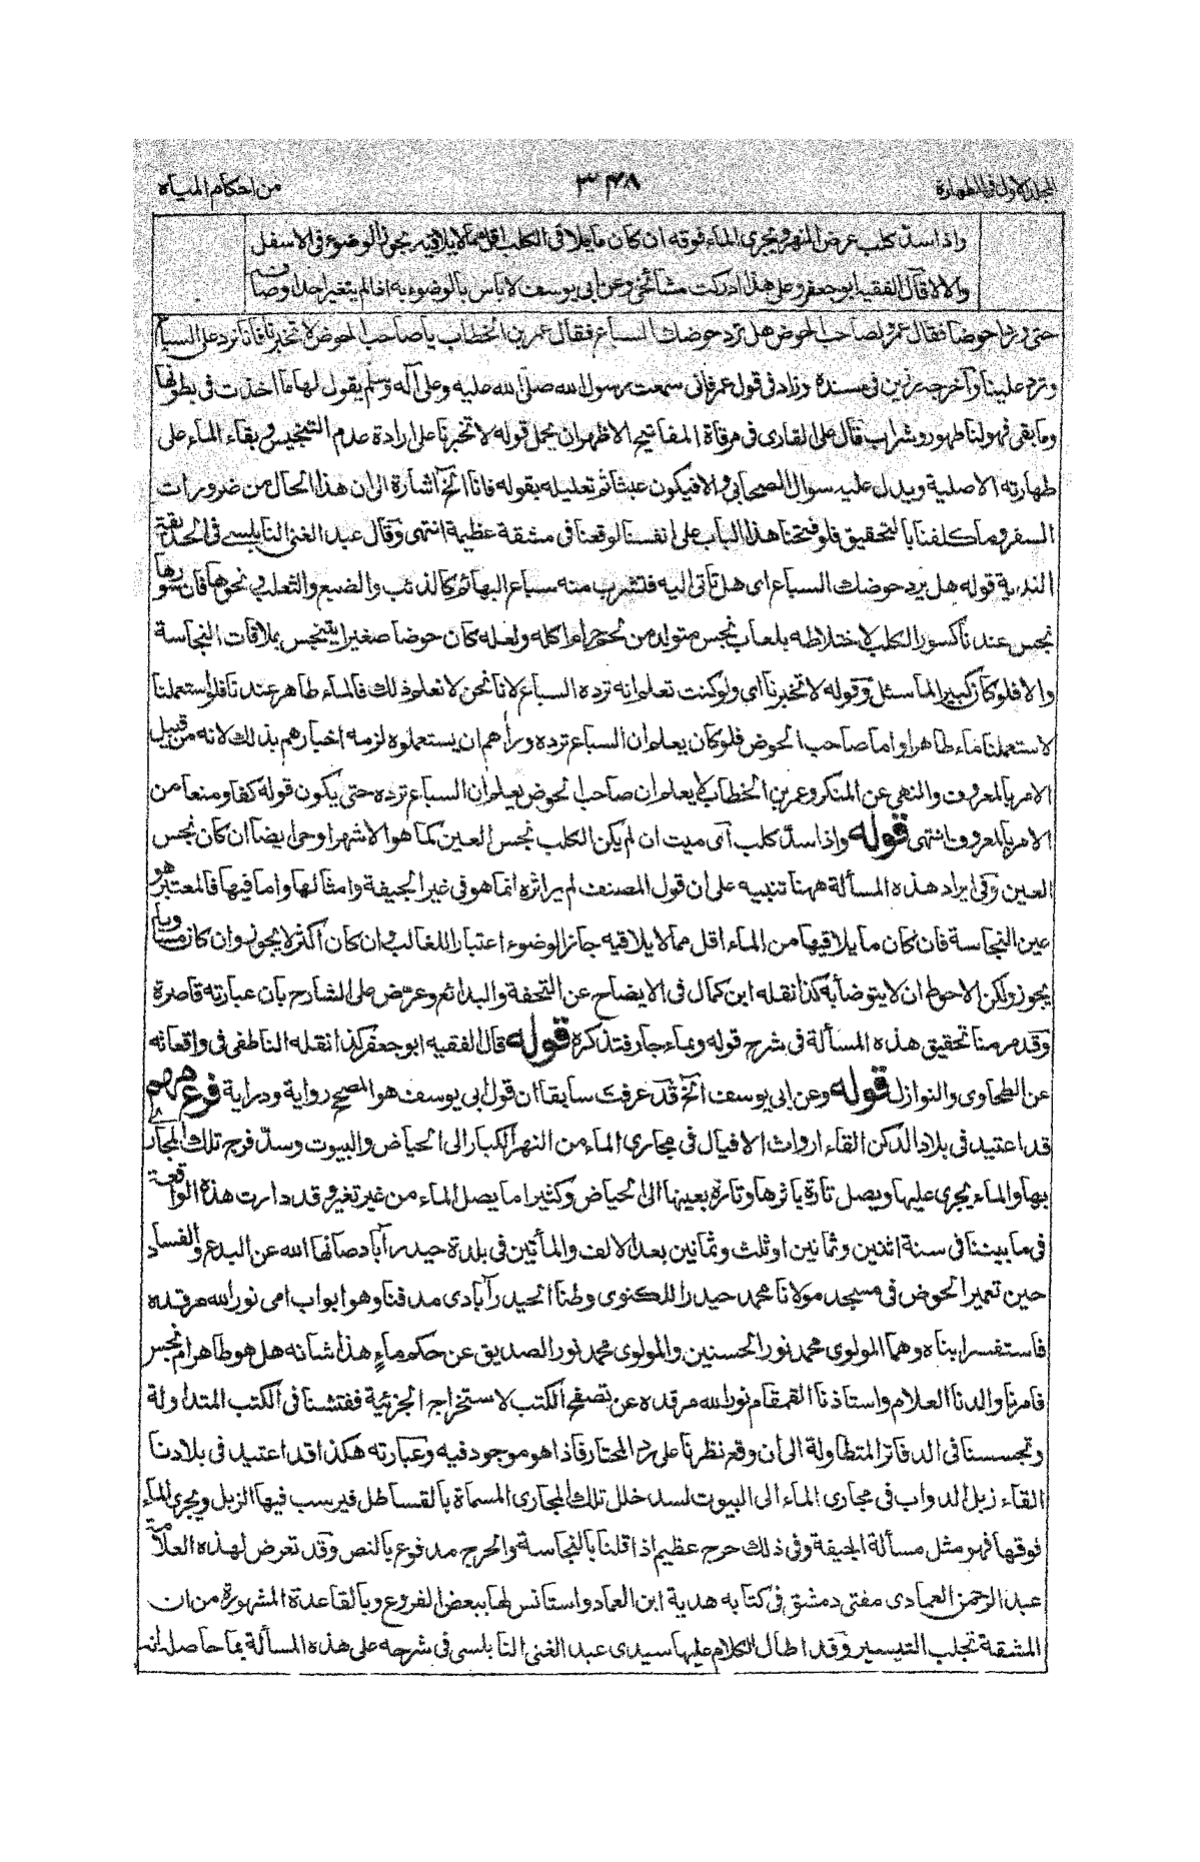 المجلد الاول فى الطهارة ٣٤٨ من احكام المياه
واذا سدّ كلب عرض النهر ويجرى الماء فوقه ان كان ما يلاقى الكلب اقل مما لا يلاقيه يجوز الوضوء فى الاسفل
والا لا قال الفقيه ابو جعفر وعلى هذا ادركت مشائخى وعن ابى يوسف لا باس بالوضوء به اذا لم يتغير احد اوصافه
حتى وردا حوضا فقال عمرو لصاحب الحوض هل ترد حوضك السباع فقال عمر بن الخطاب يا صاحب الحوض لا تخبرنا فانا نرد على السباع
وترد علينا وآخرجه رزين فى مسنده وزاد فى قول عمر فانى سمعت رسول الله صلى الله عليه وعلى آله وسلم يقول لها ما اخذت فى بطونها
وما بقى فهو لنا طهور وشراب قال على القارى فى مرقاة المفاتيح الاظهر ان يحمل قوله لا تخبرنا على ارادة عدم التنجيس وبقاء الماء على
طهارته الاصلية ويدل عليه سوال الصحابى والا فيكون عبثا ثم تعليله بقوله فانا الخ اشارة الى ان هذا الحال من ضرورات
السفر وما كلفنا بالتحقيق فلو فتحنا هذا الباب على انفسنا لوقعنا فى مشقة عظيمة انتهى وقال عبد الغنى النابلسى فى الحديقة
الندية قوله هل يرد حوضك السباع اى هل تاتى اليه فتشرب منه سباع البهائم كالذئب والضبع والثعلب ونحوها فان سورها
نجس عندنا كسور الكلب لاختلاطه بلعاب نجس متولد من لحم حرام اكله ولعله كان حوضا صغيرا يتنجس بملاقات النجاسة
والا فلو كان كبيرا لما سئل وقوله لا تخبرنا اى ولو كنت تعلم انه ترده السباع لانا نحن لا نعلم ذلك فالماء طاهر عندنا فلو استعملنا
لاستعملنا ماء طاهرا واما صاحب الحوض فلو كان يعلم ان السباع ترده ورأهم ان يستعملوه لزمه اخبارهم بذلك لانه من قبيل
الامر بالمعروف والنهى عن المنكر وعمر بن الخطاب لا يعلم ان صاحب الحوض يعلم ان السباع ترده حتى يكون قوله كفا ومنعا من
الامر بالمعروف انتهى قوله واذا سدّ كلب آى ميت ان لم يكن الكلب نجس العين كما هو الاشهر او حى ايضا ان كان نجس
العين وفى ايراد هذه المسألة ههنا تنبيه على ان قول المصنف لم ير اثره انما هو فى غير الجيفة وامثالها واما فيها فالمعتبر هو
عين النجاسة فان كان ما يلاقيها من الماء اقل مما لا يلاقيه جاز الوضوء اعتبارا للغالب وان كان اكثر لا يجوز وان كان مساويا
يجوز ولكن الاحوط ان لا يتوضأ به كذا نقله ابن كمال فى الايضاح عن التحفة والبدائع وعرّض على الشارح بان عبارته قاصرة
وقد مر منا تحقيق هذه المسألة فى شرح قوله وبماء جار فتذكره قوله قال الفقيه ابو جعفر كذا نقله الناطفى فى واقعاته
عن الطحاوى والنوازل قوله وعن ابى يوسف الخ قد عرفت سابقا ان قول ابى يوسف هو المصحح رواية ودراية فرع مهم
قد اعتيد فى بلاد الدكن القاء ارواث الافيال فى مجارى الماء من النهر الكبار الى الحياض والبيوت وسدّ فرج تلك المجار
بها والماء يجرى عليها ويصل تارة باثرها وتارة بعينها الى الحياض وكثيرا ما يصل الماء من غير تغير وقد دارت هذه الواقعة
فى ما بيننا فى سنة اثنين وثمانين او ثلث وثمانين بعد الالف والمأتين فى بلدة حيدرآباد صانها الله عن البدع والفساد
حين تعمير الحوض فى مسجد مولانا محمد حيدر اللكنوى وطنا الحيدرآبادى مدفنا وهو ابو اب امى نور الله مرقده
فاستفسر ابناه وهما المولوى محمد نور الحسنين والمولوى محمد نور الصديق عن حكم ماء هذا شانه هل هو طاهر ام نجس
فامرنا والدنا العلام واستاذنا القمقام نور الله مرقده عن تصفح الكتب لاستخراج الجزئية ففتشنا فى الكتب المتداولة
وتجسسنا فى الدفاتر المتطاولة الى ان وقع نظرنا على رد المحتار فاذا هو موجود فيه وعبارته هكذا قد اعتيد فى بلادنا
القاء زبل الدواب فى مجارى الماء الى البيوت لسد خلل تلك المجارى المسماة بالقساطل فيرسب فيها الزبل ويجرى الماء
فوقها فهو مثل مسألة الجيفة وفى ذلك حرج عظيم اذا قلنا بالنجاسة والحرج مدفوع بالنص وقد تعرض لهذه العلامة
عبد الرحمن العمادى مفتى دمشق فى كتابه هدية ابن العماد واستانس لها ببعض الفروع وبالقاعدة المشهورة من ان
المشقة تجلب التيسير وقد اطال الكلام عليها سيدى عبد الغنى النابلسى فى شرحه على هذه المسألة بما حاصله انه